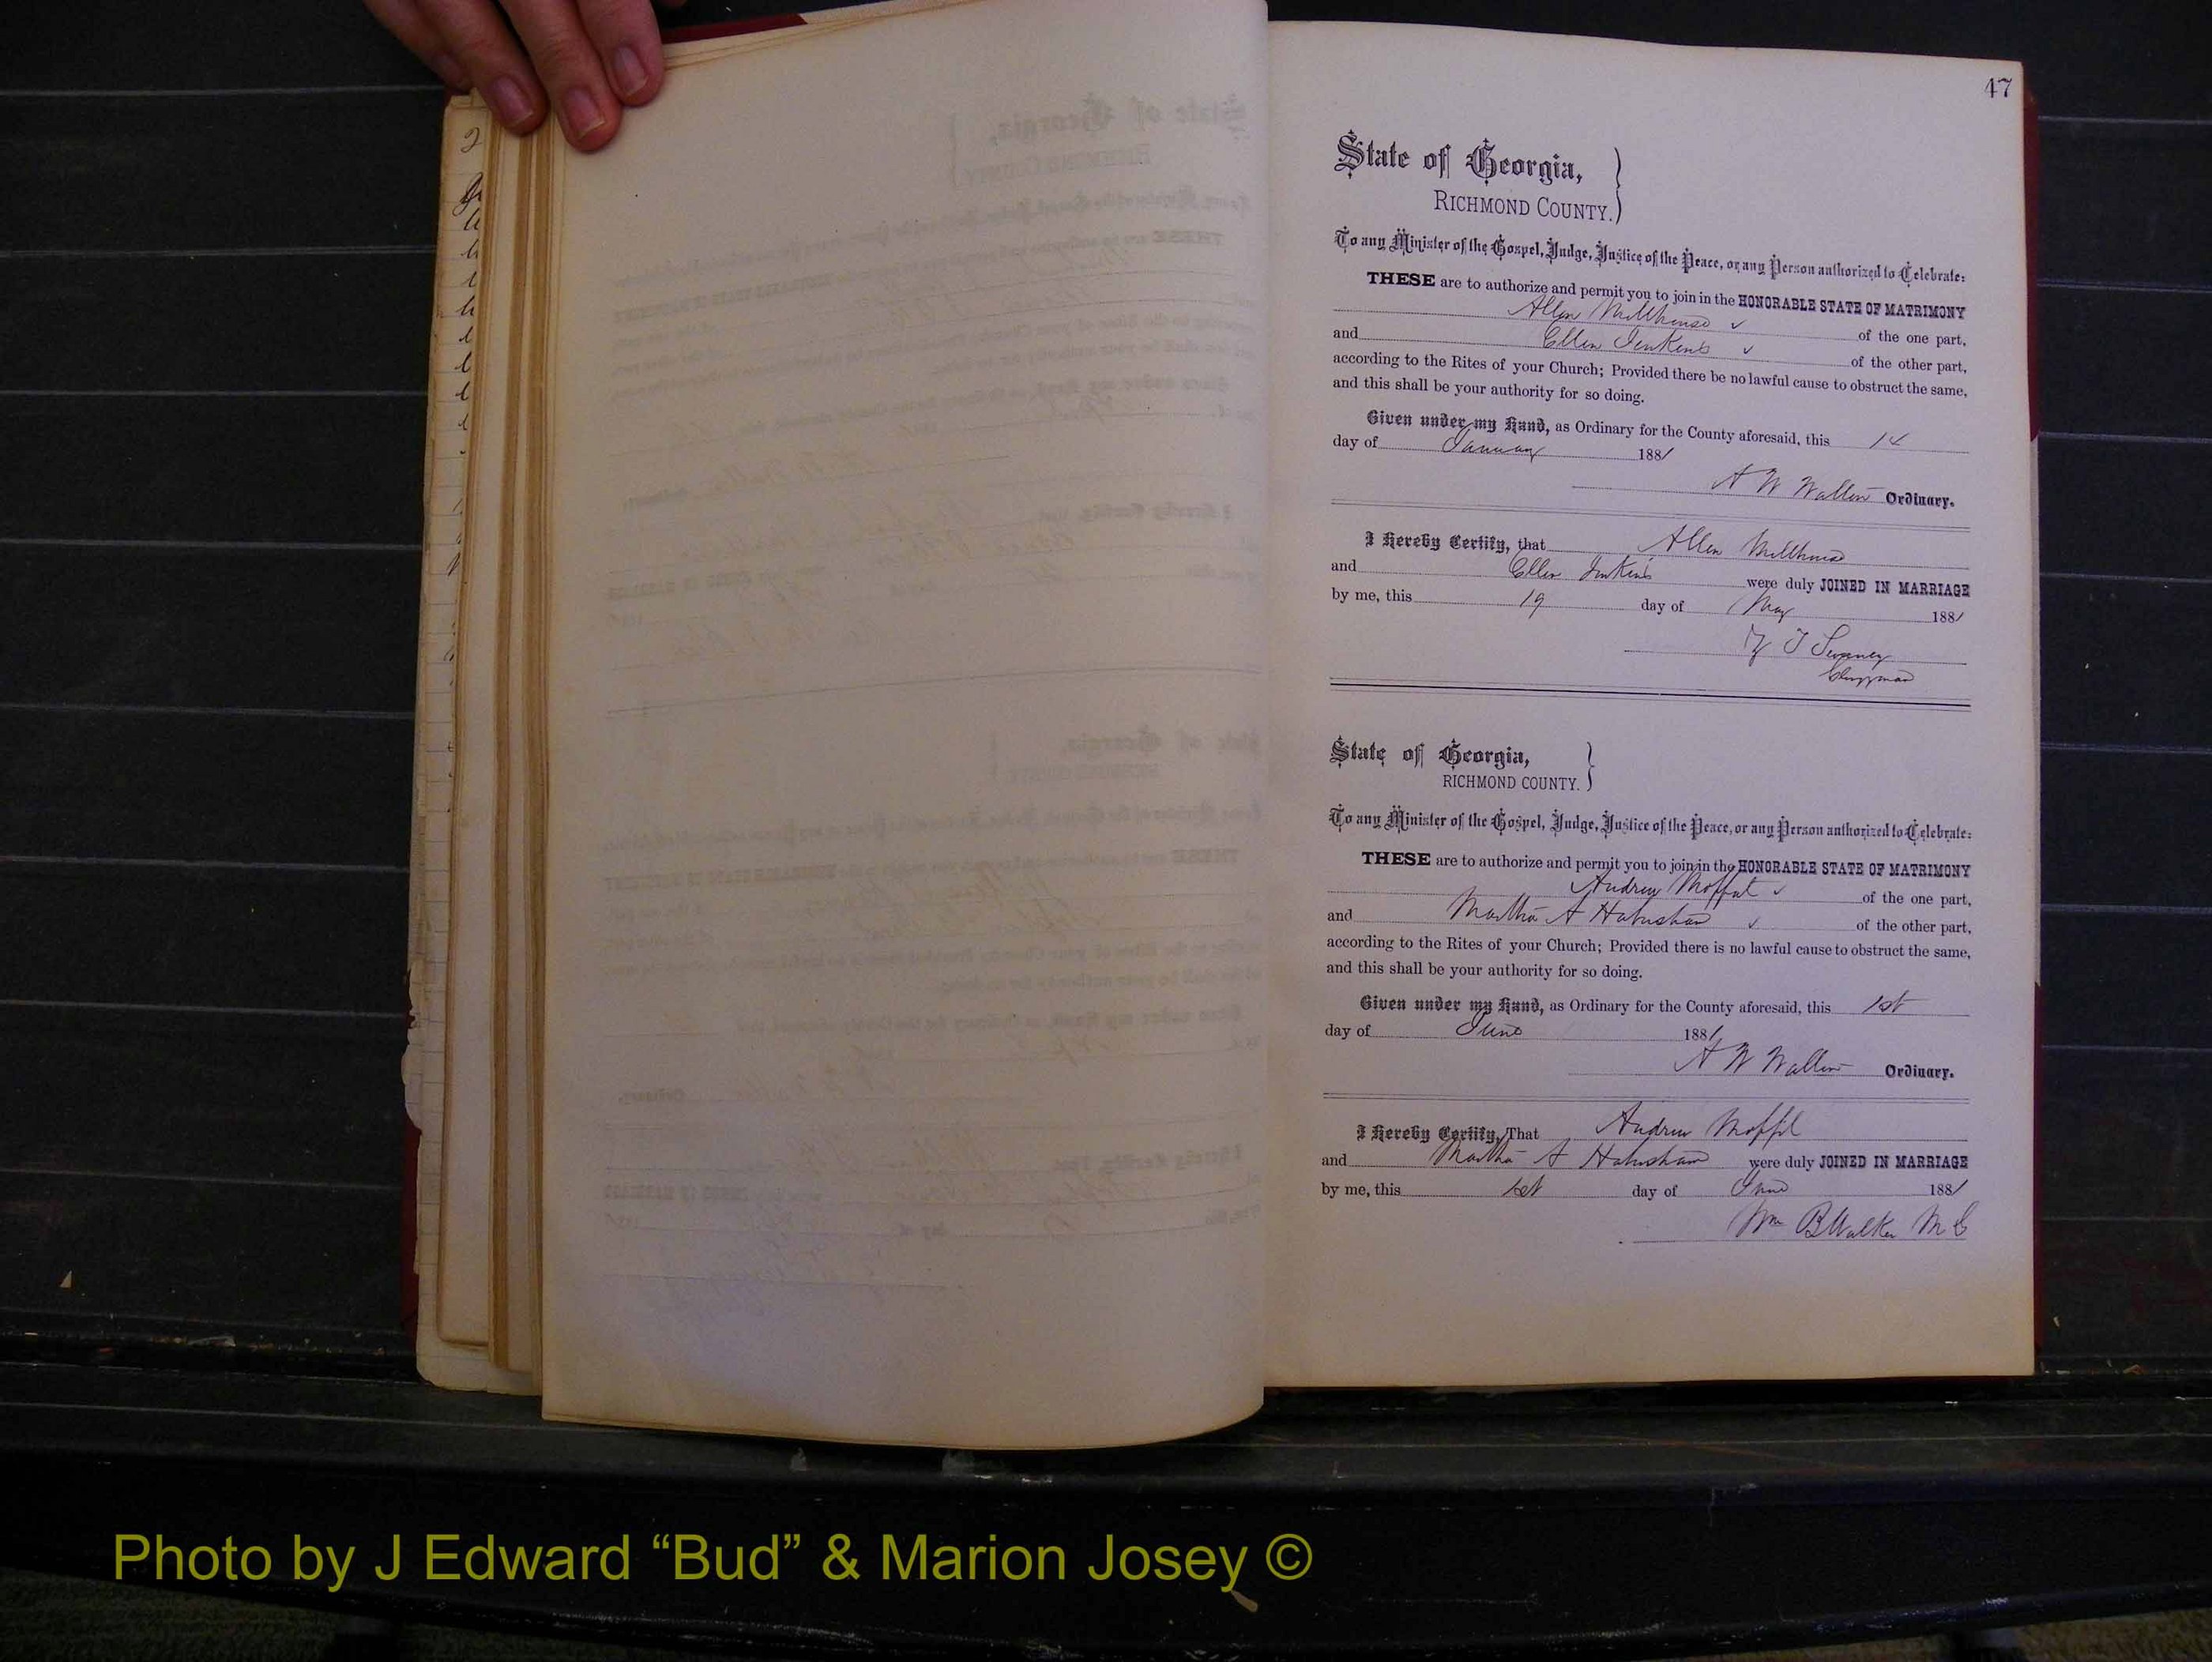 47
State of Georgia,
RICHMOND COUNTY.
To any Minister of the Gospel, Judge, Justice of the Peace, or any Person authorized to Celebrate:
THESE are to authorize and permit you to join in the HONORABLE STATE OF MATRIMONY
Allen Millhouse of the one part,
and Ellen Jenkins of the other part,
according to the Rites of your Church; Provided there be no lawful cause to obstruct the same,
and this shall be your authority for so doing.
Given under my Hand, as Ordinary for the County aforesaid, this 14
day of January 1881
A W Walton Ordinary.
I Hereby Certify, that Allen Millhouse
and Ellen Jenkins were duly JOINED IN MARRIAGE
by me, this 19 day of May 1881
T Sweeney
Clergyman
State of Georgia,
RICHMOND COUNTY.
To any Minister of the Gospel, Judge, Justice of the Peace, or any Person authorized to Celebrate:
THESE are to authorize and permit you to join in the HONORABLE STATE OF MATRIMONY
Andrew Moffat of the one part,
and Martha A Habersham of the other part,
according to the Rites of your Church; Provided there is no lawful cause to obstruct the same,
and this shall be your authority for so doing.
Given under my Hand, as Ordinary for the County aforesaid, this 1st
day of June 1881
A W Walton Ordinary.
I Hereby Certify, That Andrew
and Martha A Habersham were duly JOINED IN MARRIAGE
by me, this 1st day of June 1881
Wm B Walker M G
Photo by J Edward “Bud” & Marion Josey ©